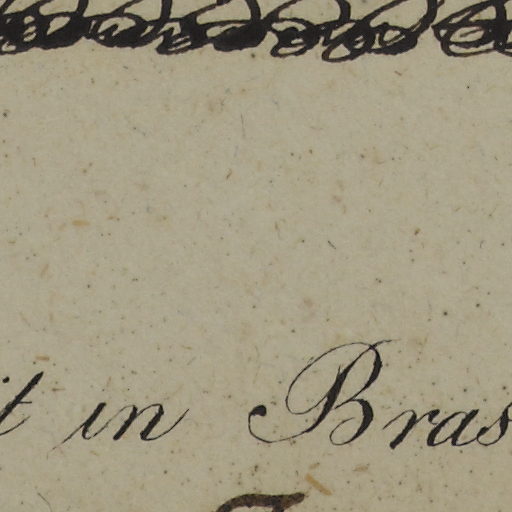 t in Bras